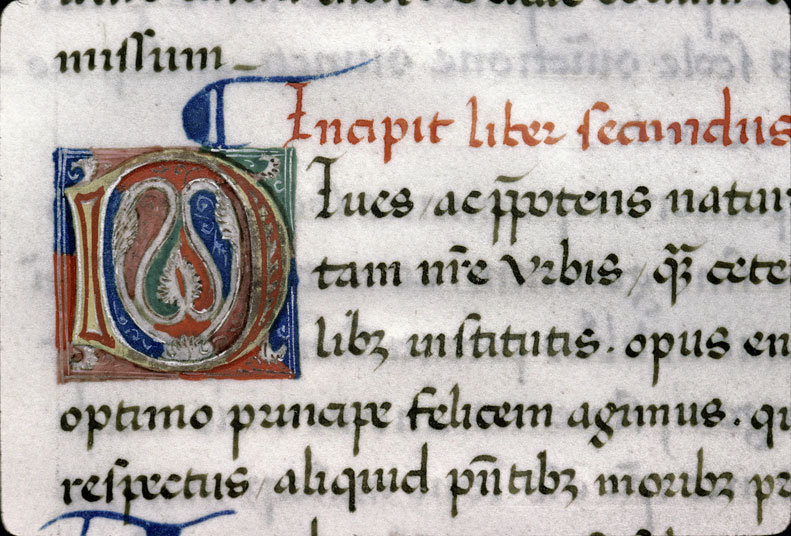 missum
Incipit liber secundus
DIues / ac p̄potens natur
tam nr̄e vrbis / qꝫ̄ cete
libꝫ institutis . opus en
optimo principe felicem agimus . qu
respectus / aliquid pn̄tibꝫ moribꝫ pr